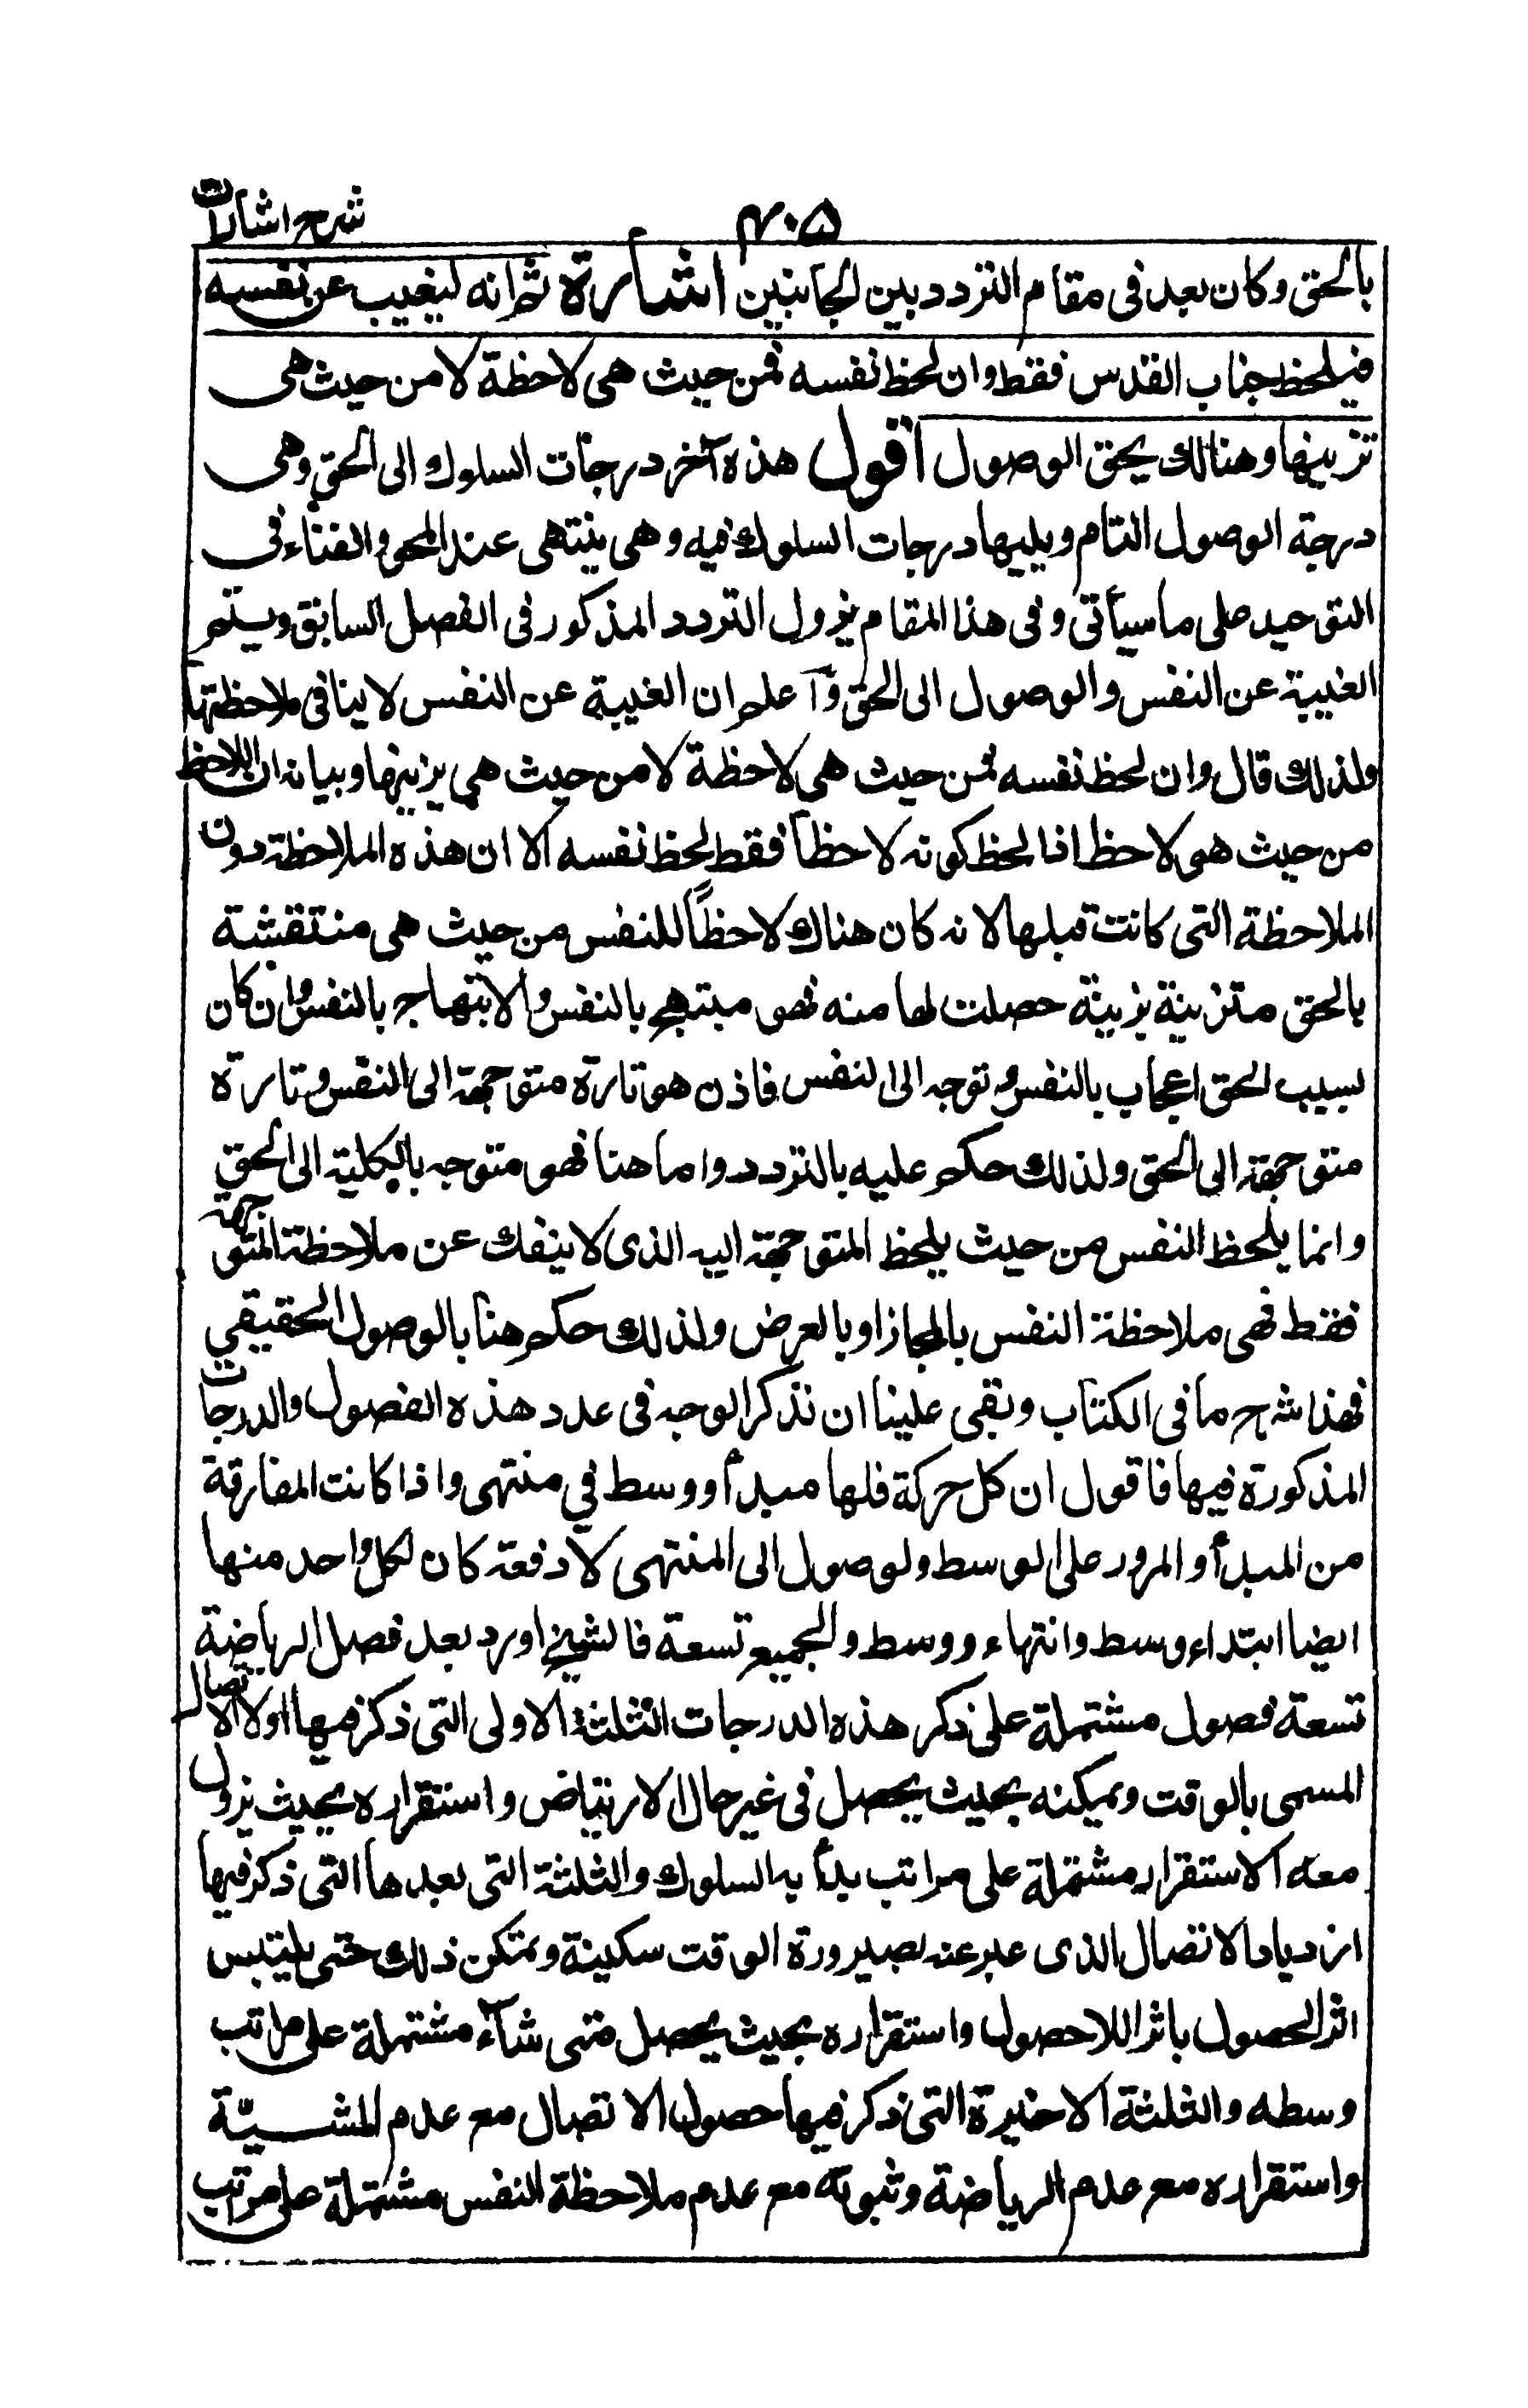 شرح اشارات
۴۰۵
بالحق وكان بعد فى مقام التردد بين الجانبين اشارة ثم انه ليغيب عن نفسه
فيلحظ جناب القدس فقط وان لحظ نفسه فمن حيث هى لاحظة لا من حيث هى
بزينها وهنالك يحق الوصول اقول هذه آخر درجات السلوك الى الحق وهى
درجة الوصول التام ويليها درجات السلوك فيه وهى ينتهى عند المحو والفناء فى
التوحيد على ما سيأتى وفى هذا المقام يزول التردد المذكور فى الفصل السابق ويستمر
الغيبة عن النفس والوصول الى الحق وآعلم ان الغيبة عن النفس لا ينافى ملاحظتها
ولذلك قال وان لحظ نفسه فمن حيث هى لاحظة لا من حيث هى بزينها وبيانه ان اللاحظ
من حيث هو لاحظ اذا لحظ كونه لاحظاً فقط لحظ نفسه الا ان هذه الملاحظة دون
الملاحظة التى كانت قبلها لانه كان هناك لاحظاً للنفس من حيث هى منتقشة
بالحق متزينة بزينة حصلت لها منه فهو مبتهج بالنفس والابتهاج بالنفس وان كان
بسبب الحق اعجاب بالنفس وتوجه الى النفس فاذن هو تارة متوجهة الى النفس وتارة
متوجهة الى الحق ولذلك حكم عليه بالتردد واما هنا فهو متوجه بالكلية الى الحق
وانما يلحظ النفس من حيث يلحظ المتوجهة اليه الذى لا ينفك عن ملاحظة المتوجهة
فقط فهى ملاحظة النفس بالمجاز او بالعرض ولذلك حكم هنا بالوصول الحقيقي
فهذا شرح ما فى الكتاب وبقى علينا ان نذكر الوجه فى عدد هذه الفصول والدرجات
المذكورة فيها فاقول ان كل حركة فلها مبدأ ووسط في منتهى واذا كانت المفارقة
من المبدأ والمرور على الوسط ولوصول الى المنتهى لا دفعة كان لكل واحد منها
ايضا ابتداء وسط وانتهاء ووسط والجميع تسعة فالشيخ اورد بعد فصل الرياضة
تسعة فصول مشتملة على ذكر هذه الدرجات الثلثة الاولى التى ذكر فيها اولا الاتصال
المسمى بالوقت وتمكينه بحيث يحصل فى غير حال الارتياض واستقراره بحيث يزول
معه الاستقرار مشتملة على مراتب بدأ به السلوك والثلثة التى بعدها التى ذكر فيها
ازدياد الاتصال الذى عبر عنه بصيرورة الوقت سكينة وتمكن ذلك حتى يلتبس
اثر الحصول باثر اللاحصول واستقراره بحيث يحصل متى شآء مشتملة على مراتب
وسطه والثلثة الاخيرة التى ذكر فيها حصول الاتصال مع عدم المشيّة
واستقراره مع عدم الرياضة وثبوته مع عدم ملاحظة النفس مشتملة على مراتب